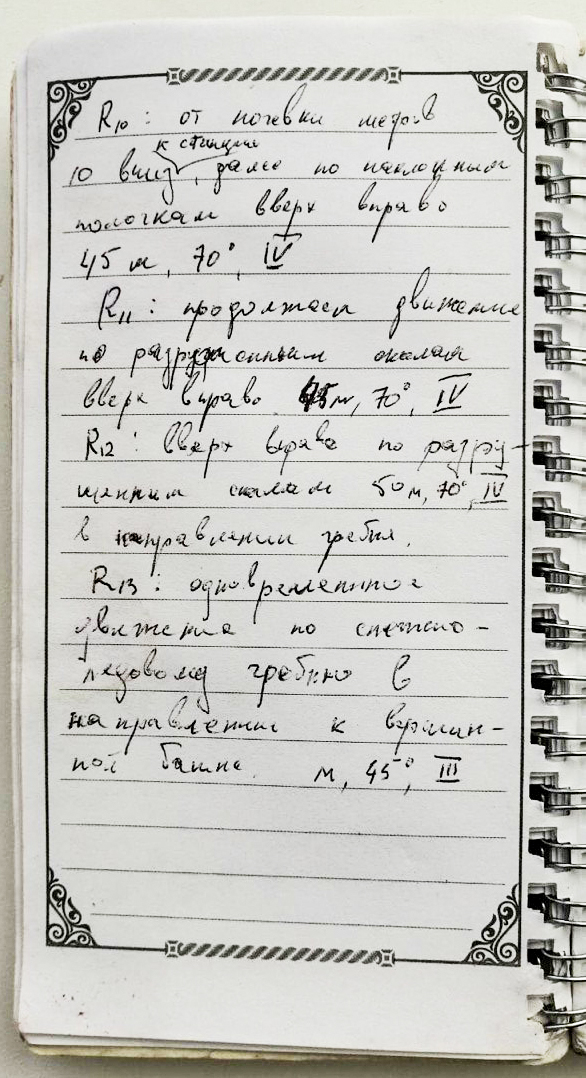 R10 : от ночевки метров
к станции
10 вниз, далее по наклонным
полочкам вверх вправо
45 м, 70°, IV
R11 : продолжаем движение
по разрушенным скалам
вверх вправо 45м, 70°, IV
R12 : вверх вправо по разру-
шенным скалам 50м, 70°, IV
в направлении гребня.
R13 : одновременное
движение по снежно-
ледовому гребню в
направлении к вершин-
ной башне. м, 45°, III